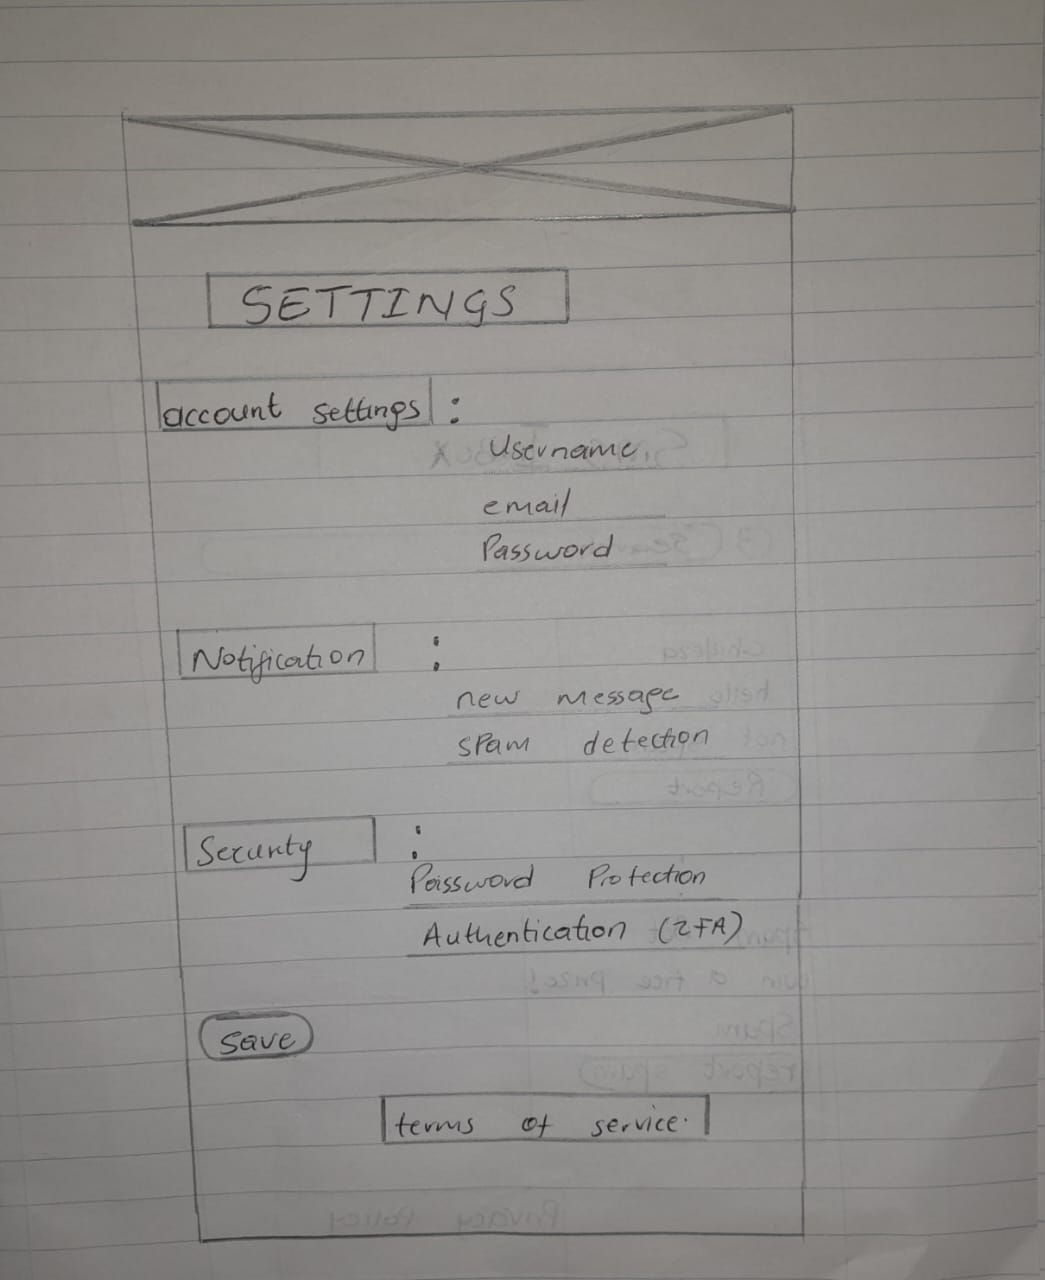 SETTINGS
account settings :
Username
email
Password
Notification :
new message
spam detection
Security :
Password Protection
Authentication (2FA)
save
terms of service.